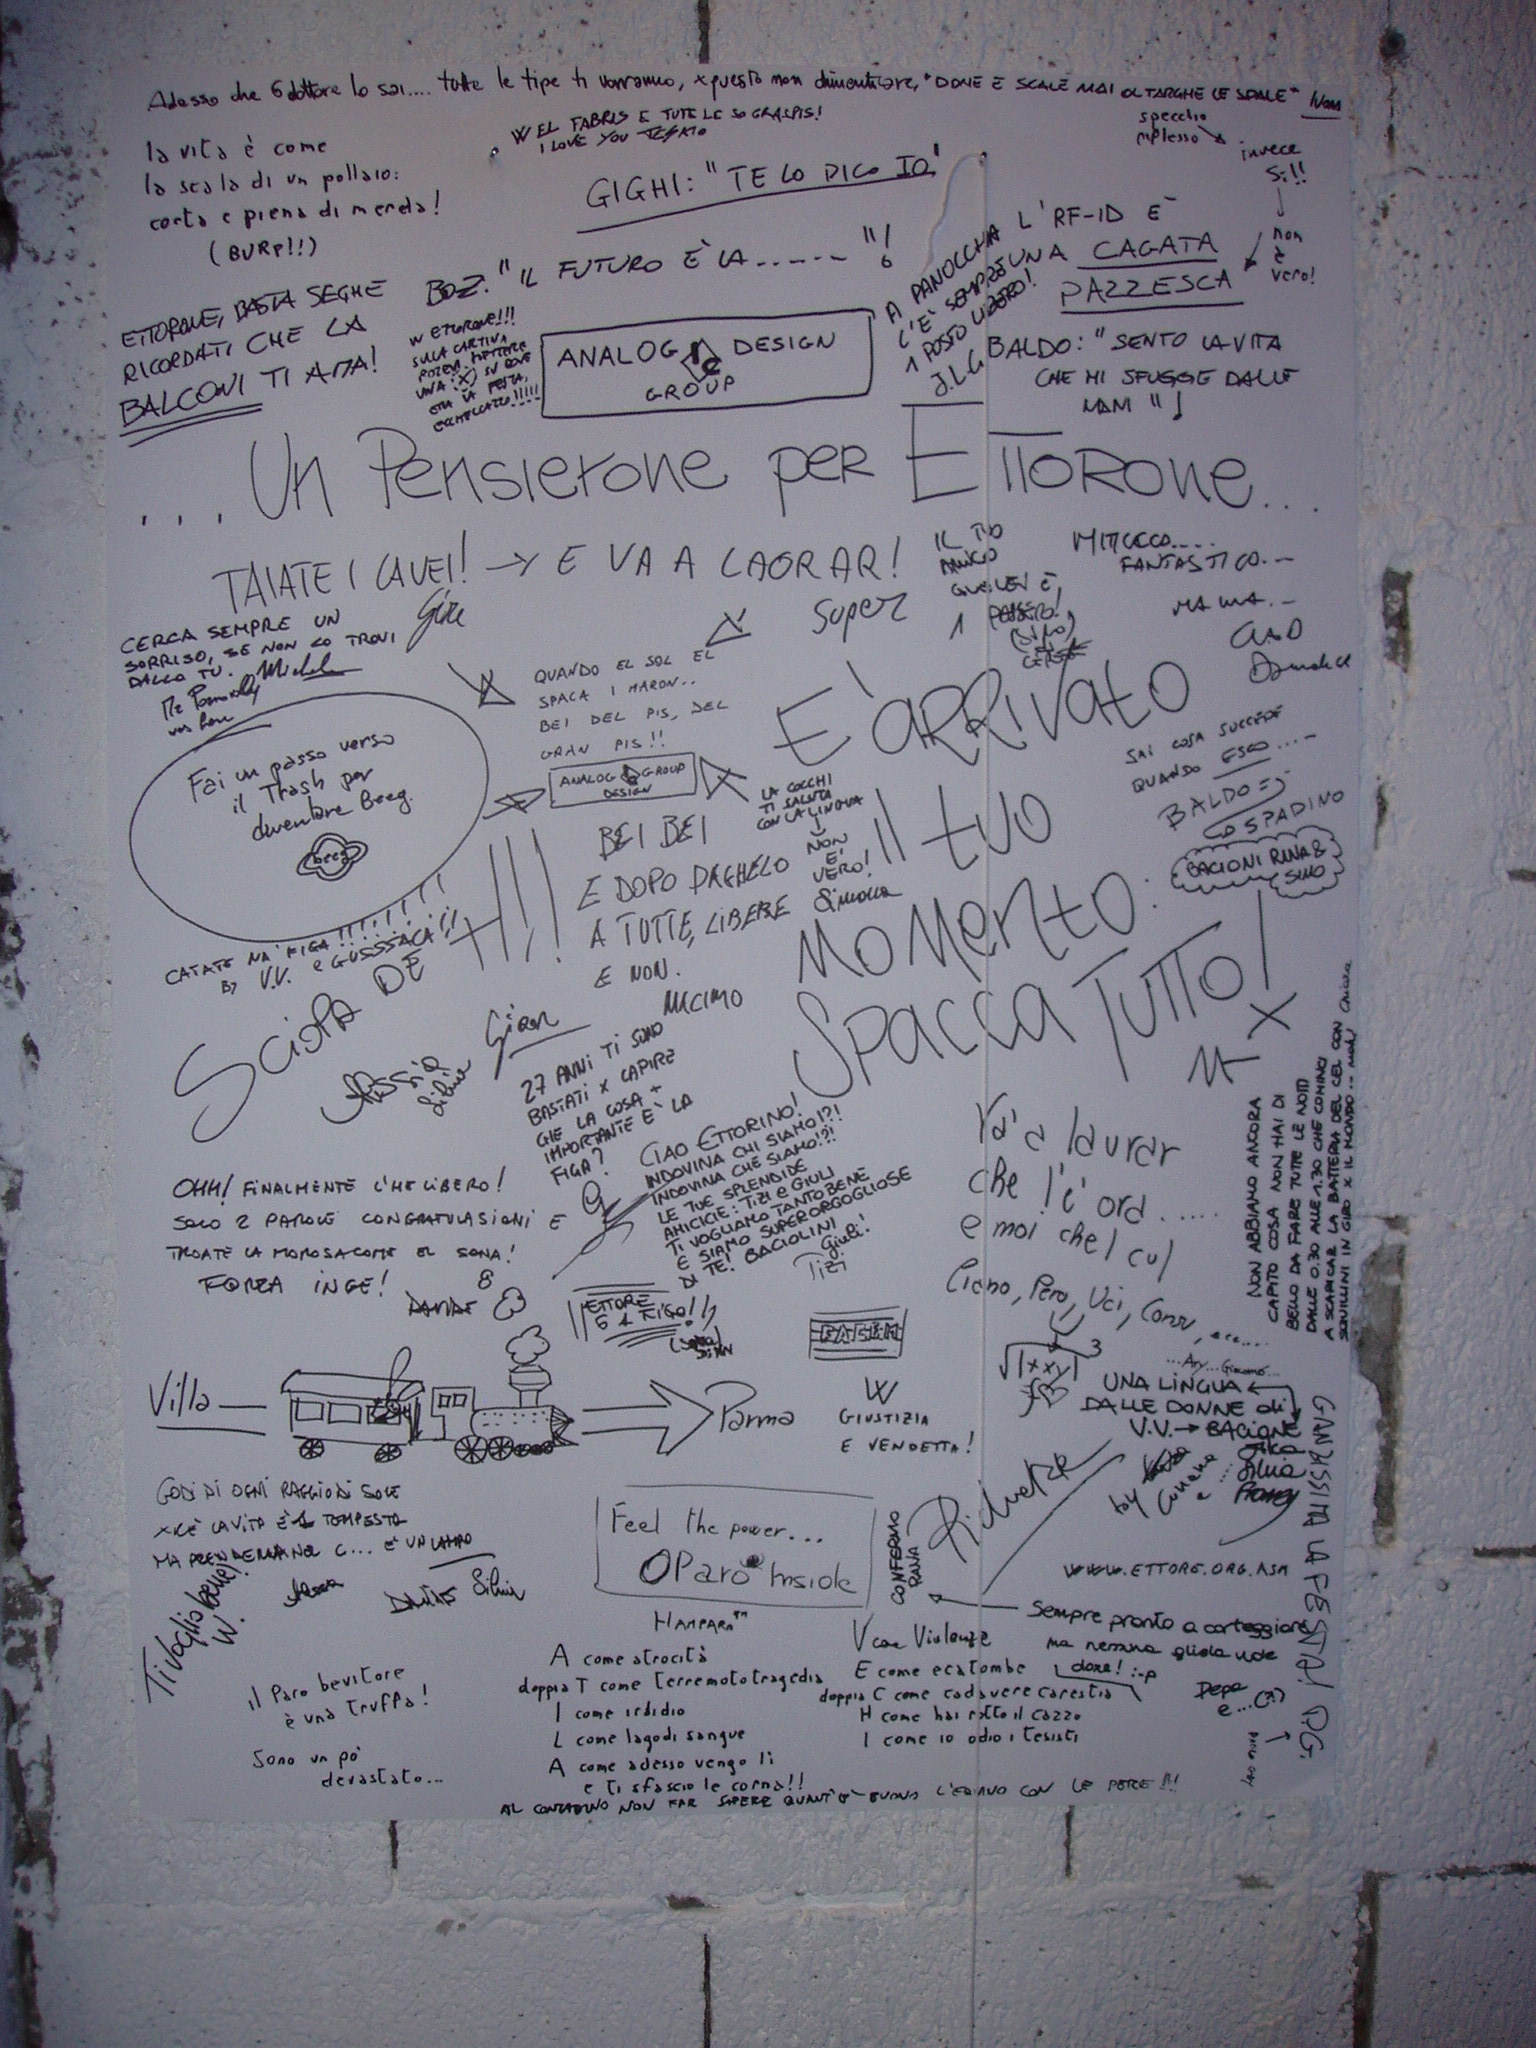 Adesso che 6 dottore lo sai.... tutte le tipe ti vorranno, x questo non dimenticare, "DONE E SCALE MAI OLTARGHE LE SPALE"
specchio
riplesso
invece
Si!!
non
è
vero!
W EL FABRIS E TUTE LE SO GRASPIS!
I LOVE YOU
la vita è come
la scala di un pollaio:
corta e piena di merda!
(BURP!!)
GIGHI: "TE LO DICO IO"
BOZ: "IL FUTURO È LA ......"!
ETTORONE, BASTA SEGHE
RICORDATI CHE LA
BALCONI TI AMA!
W ETTORONE!!!
SULLA CARTINA
POTEVI METTERE
UNA (X) SU DOVE
ERA LA FESTA,
ANALOG DESIGN
GROUP
A PANOCCHIA
C'E' SEMPRE
1 POSTO LIBERO!
J.L.G
L'RF-ID È
UNA CAGATA
PAZZESCA
BALDO: "SENTO LA VITA
CHE MI SFUGGE DALLE
MANI"!
... Un Pensierone per ETTORONE...
TAIATE I CAVEI! → E VA A LAORAR!
CERCA SEMPRE UN
SORRISO, SE NON LO TROVI
DALLO TU.
Fai un passo verso
il Trash per
diventare Beeg.
beeg
CATATE NA' FIGA!!!!!!!
BY V.V. e GUSSSACA!!
SCIOPA DE
H!!!
QUANDO EL SOL EL
SPACA I MARON..
BEI DEL PIS, DEL
GRAN PIS!!
ANALOG GROUP
DESIGN
BEI BEI
E DOPO DAGHELO
A TUTTE, LIBERE
E NON.
MICIMO
LA COCCHI
TI SALUTA
CON LA LINGUA
NON
E'
VERO!
Simona
IL TUO
AMICO
1
MITICCO.....
FANTASTICO...
MA MA...
CIAO
super
E' ARRIVATO
Il tuo
MOMENTO:
SPACCA TUTTO!
SAI COSA SUCCEDE
QUANDO ESCO.....
BALDO
SPADINO
BACIONI RINA &
SIMO
Gian
Silvia
27 ANNI TI SONO
BASTATI X CAPIRE
CHE LA COSA +
IMPORTANTE E' LA
FIGA?
CIAO ETTORINO!
INDOVINA CHI SIAMO!?!
INDOVINA CHE SIAMO!?!
LE TUE SPLENDIDE
AMICICIE: TIZI e GIULI
TI VOGLIAMO TANTO BENE
E SIAMO SUPERORGOGLIOSE
DI TE! BACIOLINI
Giuli!
Tizi
Va' a laurar
che l'è ora.....
e moi che l cul
NON ABBIAMO ANCORA
CAPITO COSA NON HAI DI
BELLO DA FARE TUTTE LE NOTTI
DALLE 0.30 ALLE 1.30 CHE COMINCI
A SCARICAR LA BATTERIA DEL CEL CON
SQUILLINI IN GIRO X IL MONDO...
Chiara
OHH! FINALMENTE L'ME LIBERO!
SOLO 2 PAROLE CONGRATULASIONI E
TROATE LA MOROSA COME EL SONA!
FORZA INGE!
DAVIDE
ETTORE
6 1 FIGO!!
Villa
Parma
W
GIUSTIZIA
E VENDETTA!
UNA LINGUA
DALLE DONNE di
V.V. → BACIONE
Silvia
GODI DI OGNI RAGGIO DI SOLE
XKÈ LA VITA È 1 TEMPESTA
MA PRENDERLA NEL C... E' UN LAMPO
Silvia
Feel the power...
OParo Inside
CONFERMO
WWW.ETTORE.ORG.ASM
Sempre pronto a corteggiare
ma nessuna gliela vole
dare! :-p
GANDISSIMA LA FESTA! P.G.
Ti voglio bene!
W.
il Paro bevitore
è una truffa!
Sono un pò
devastato...
HAMPARA™
A come atrocità
doppia T come terremoto tragedia
I come irdidio
L come lago di sangue
A come adesso vengo li
e ti sfascio le corna!!
V come Violenze
E come ecatombe
doppia C come cadavere carestia
H come hai rotto il cazzo
I come io odio i tesisti
AL CONTADINO NON FAR SAPERE QUANT'È BUONO L'EDANO CON LE PERE!!!